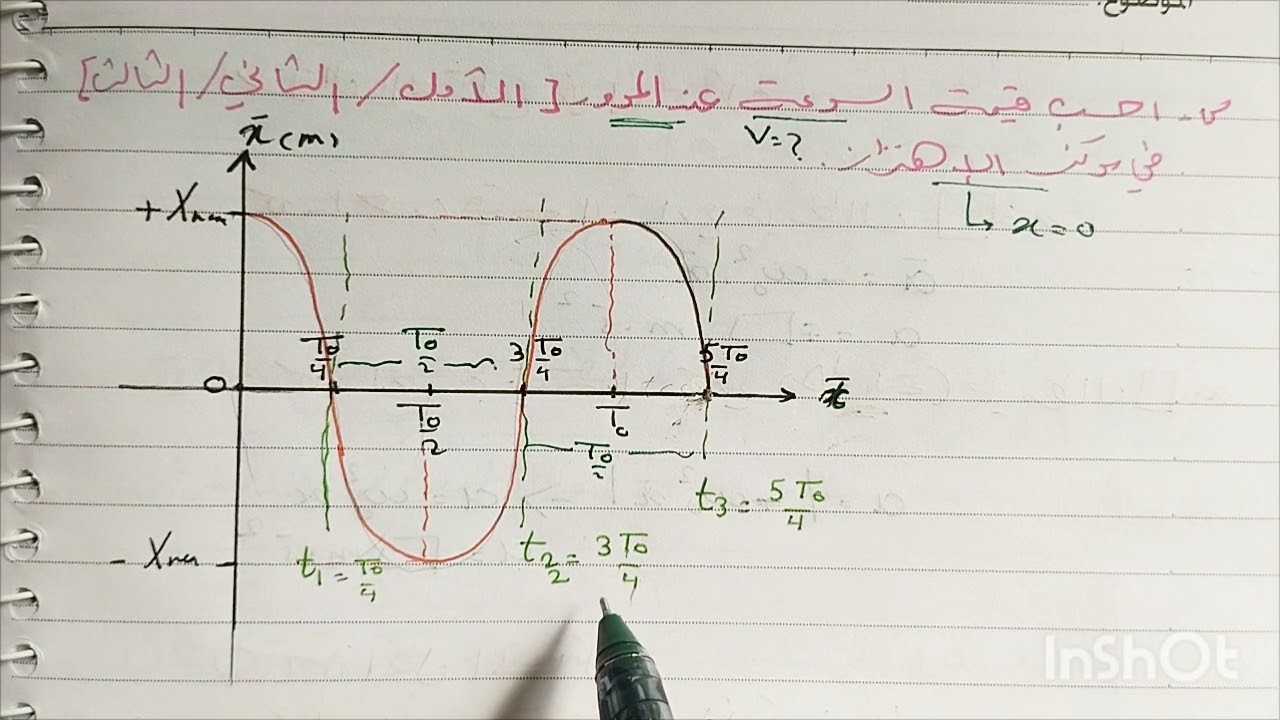 الموضوع:
س. احسب قيمة السرعة عند المرور [الأول/ الثاني/ الثالث]
V=?
في مركز الاهتزاز.
↳ x=0
x̄(m)
+Xmax
T0/4
T0/2
3T0/4
5T0/4
0
T0/2
T0
t̄
T0/2
-Xmax
t1=T0/4
t2=3T0/4
t3=5T0/4
InShOt